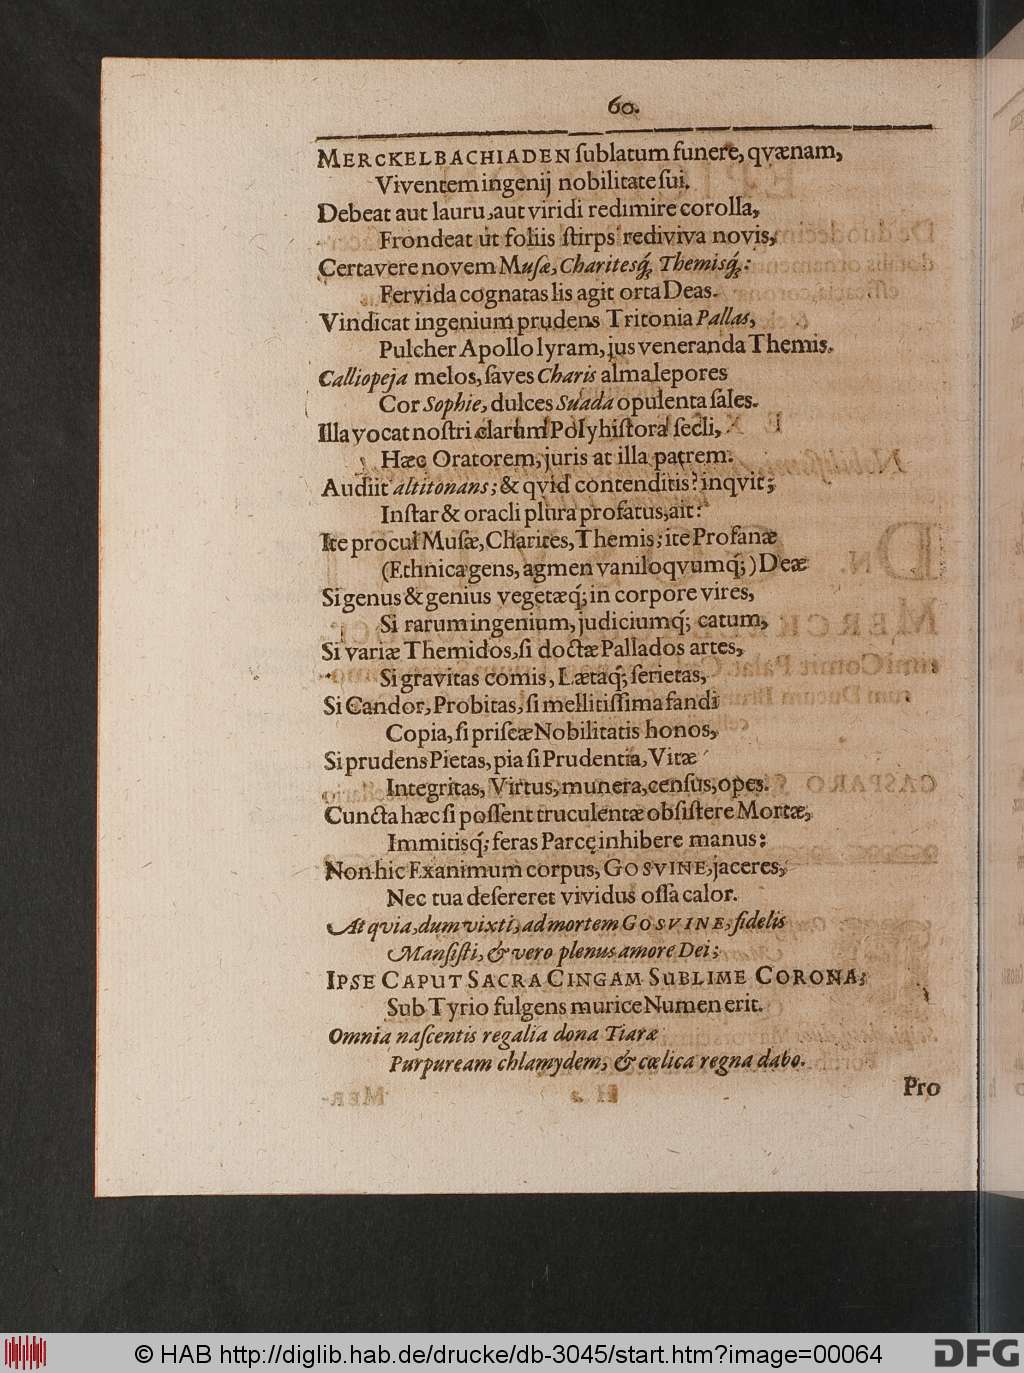 60.
MERCKELBACHIADEN ſublatum funere, qvænam,
Viventem ingenij nobilitate ſui,
Debeat aut lauru, aut viridi redimire corolla,
Frondeat ut foliis ſtirps rediviva novis,
Certavere novem Muſæ, Charitesq́; Themisq́;:
Fervida cognatas lis agit orta Deas.
Vindicat ingenium prudens Tritonia Pallas,
Pulcher Apollo lyram, jus veneranda Themis.
Calliopeja melos, ſaves Charis alma lepores
Cor Sophie, dulces Suada opulenta ſales.
Illa vocat noſtri clarum Polyhiſtora ſecli,
Hæc Oratorem, juris at illa patrem.
Audiit altitonans; & qvid contenditis? inqvit;
Inſtar & oracli plura profatus, ait:
Ite procul Muſæ, Charites, Themis; ite Profanæ
(Ethnica gens, agmen vaniloqvumq́;) Deæ
Si genus & genius vegetæq́; in corpore vires,
Si rarum ingenium, judiciumq́; catum,
Si variæ Themidos, ſi doctæ Pallados artes,
Si gravitas comis, Lætaq́; ſerietas,
Si Candor, Probitas, ſi mellitiſſima fandi
Copia, ſi priſcæ Nobilitatis honos,
Si prudens Pietas, pia ſi Prudentia, Vitæ
Integritas, Virtus, munera, cenſus, opes.
Cuncta hæc ſi poſſent truculentæ obſiſtere Mortæ,
Immitisq́; feras Parcę inhibere manus:
Non hic Exanimum corpus, GOSVINE, jaceres,
Nec tua deſereret vividus oſſa calor.
At qvia, dum vixti, ad mortem GOSVINE, fidelis
Manſiſti, & vero plenus amore Dei;
IPSE CAPUT SACRA CINGAM SUBLIME CORONA;
Sub Tyrio fulgens murice Numen erit.
Omnia naſcentis regalia dona Tiaræ
Purpuream chlamydem, & cœlica regna dabo.
Pro
© HAB http://diglib.hab.de/drucke/db-3045/start.htm?image=00064
DFG